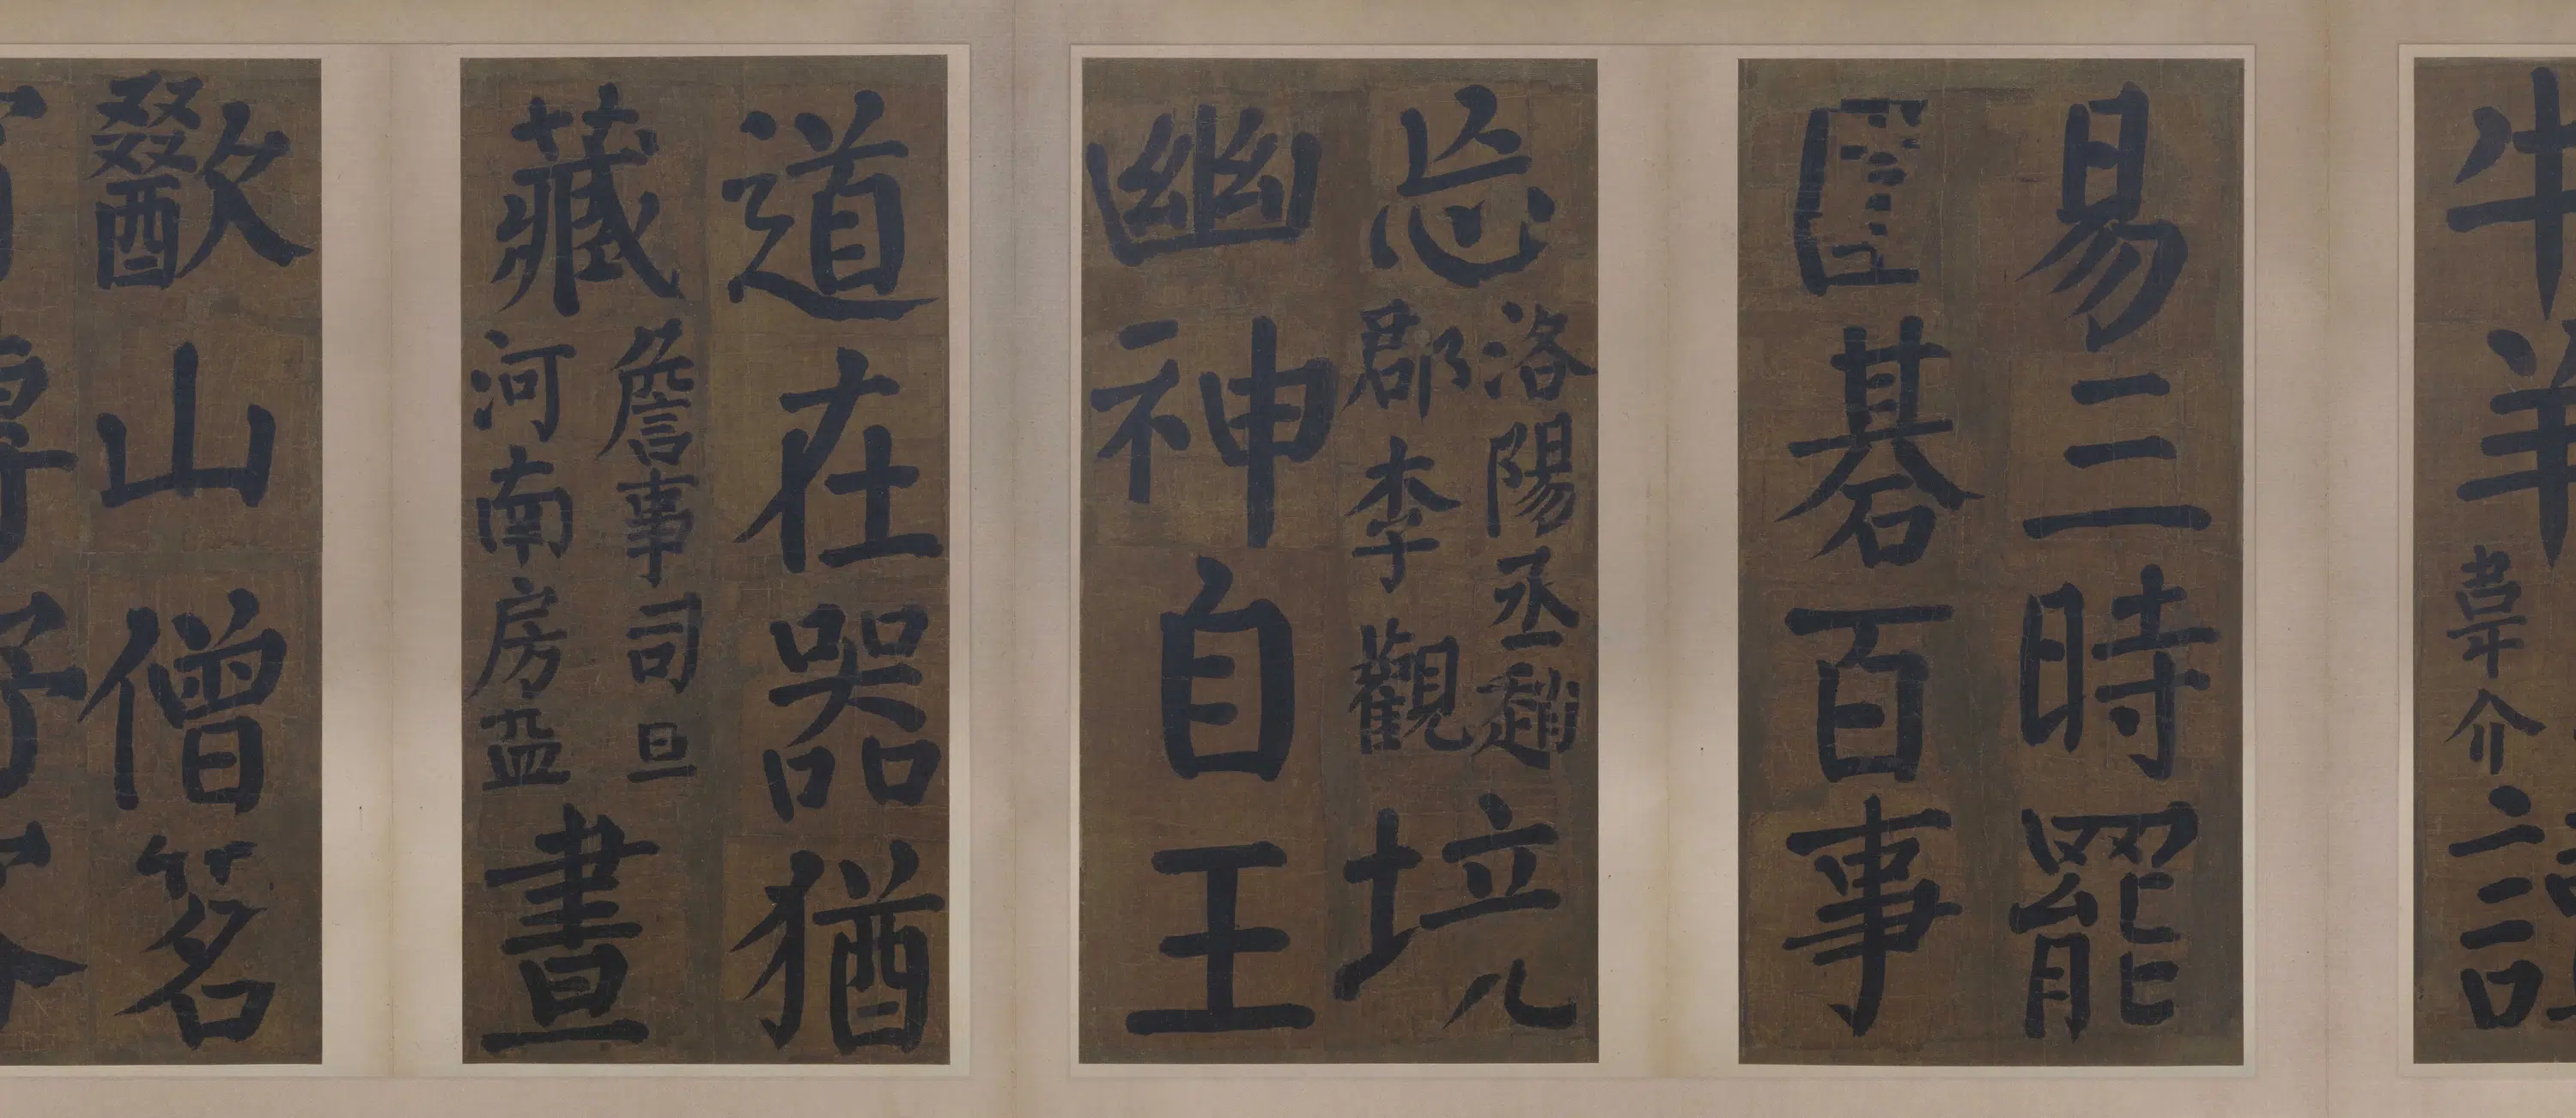 牛羊
韋介
易三時罷
圍碁百事
忘
洛陽丞趙
郡李觀
境
幽神自王
道在器猶
藏
詹事司直
河南房益
晝
歠山僧茗